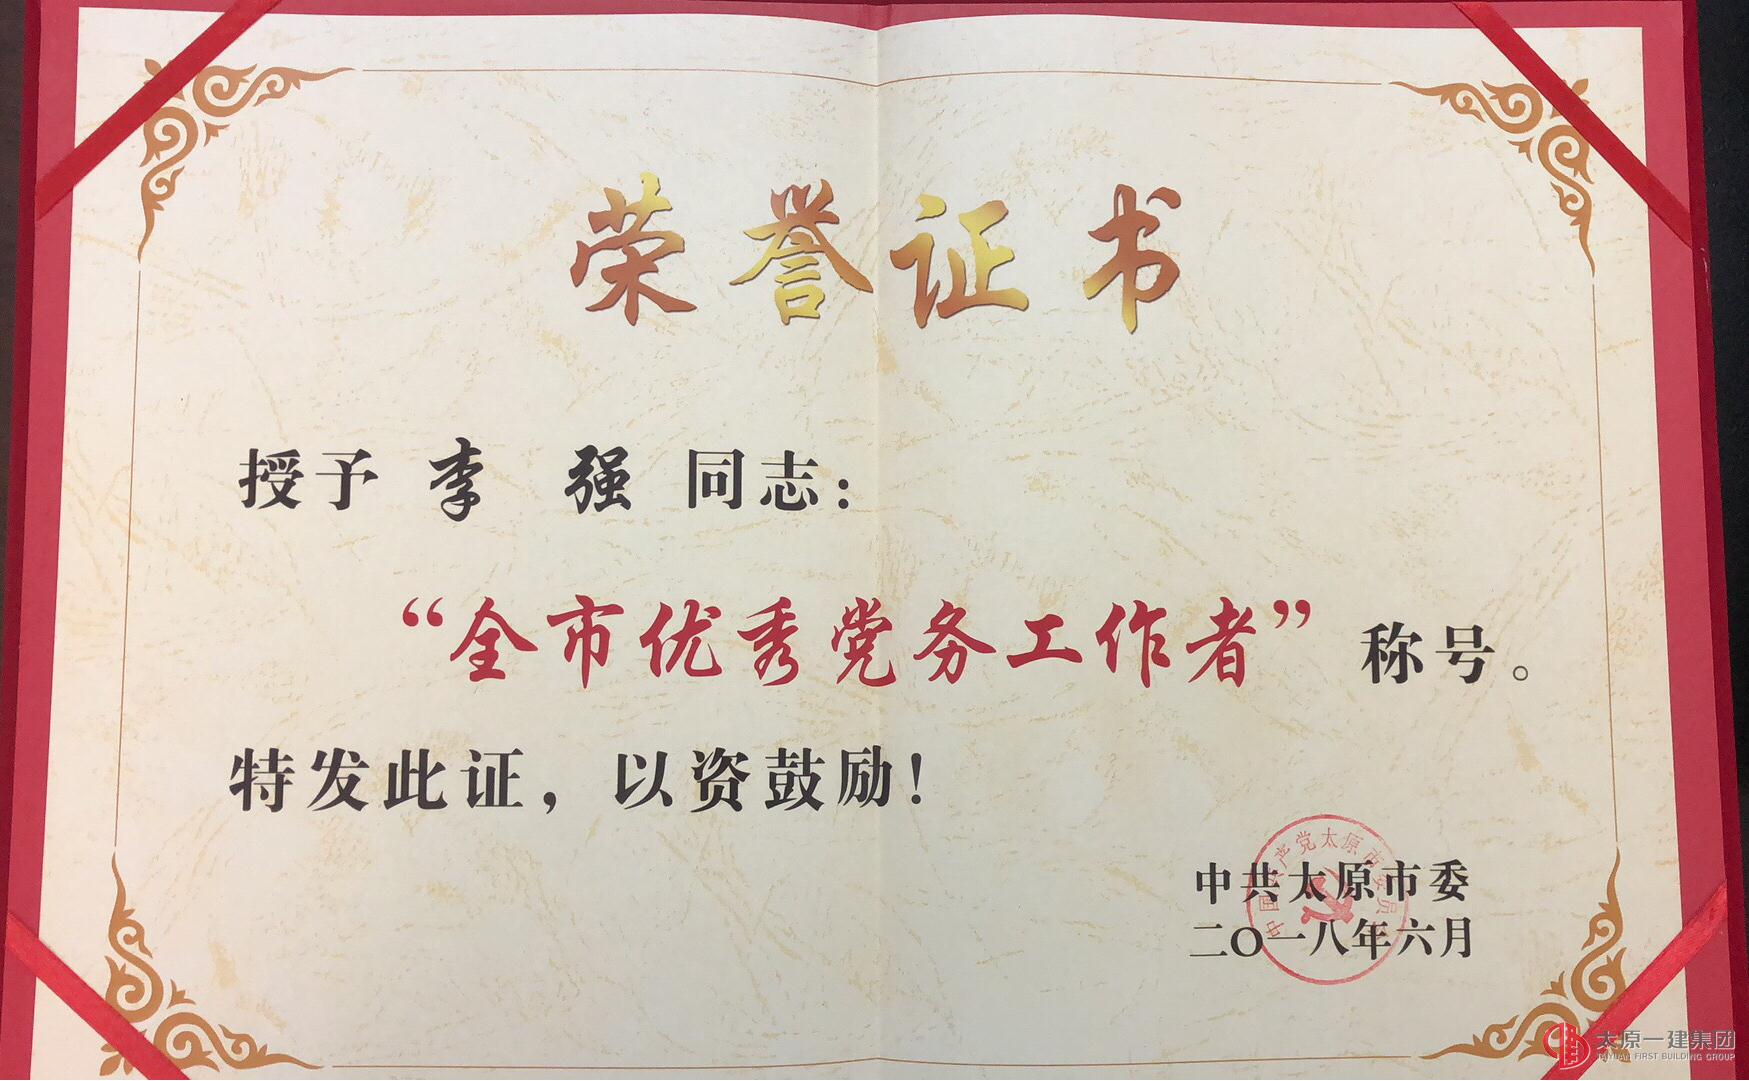 荣誉证书
授予 李 强 同志：
“全市优秀党务工作者”称号。
特发此证，以资鼓励！
中国共产党太原市委员会
中共太原市委
二〇一八年六月
太原一建集团
TAIYUAN FIRST BUILDING GROUP